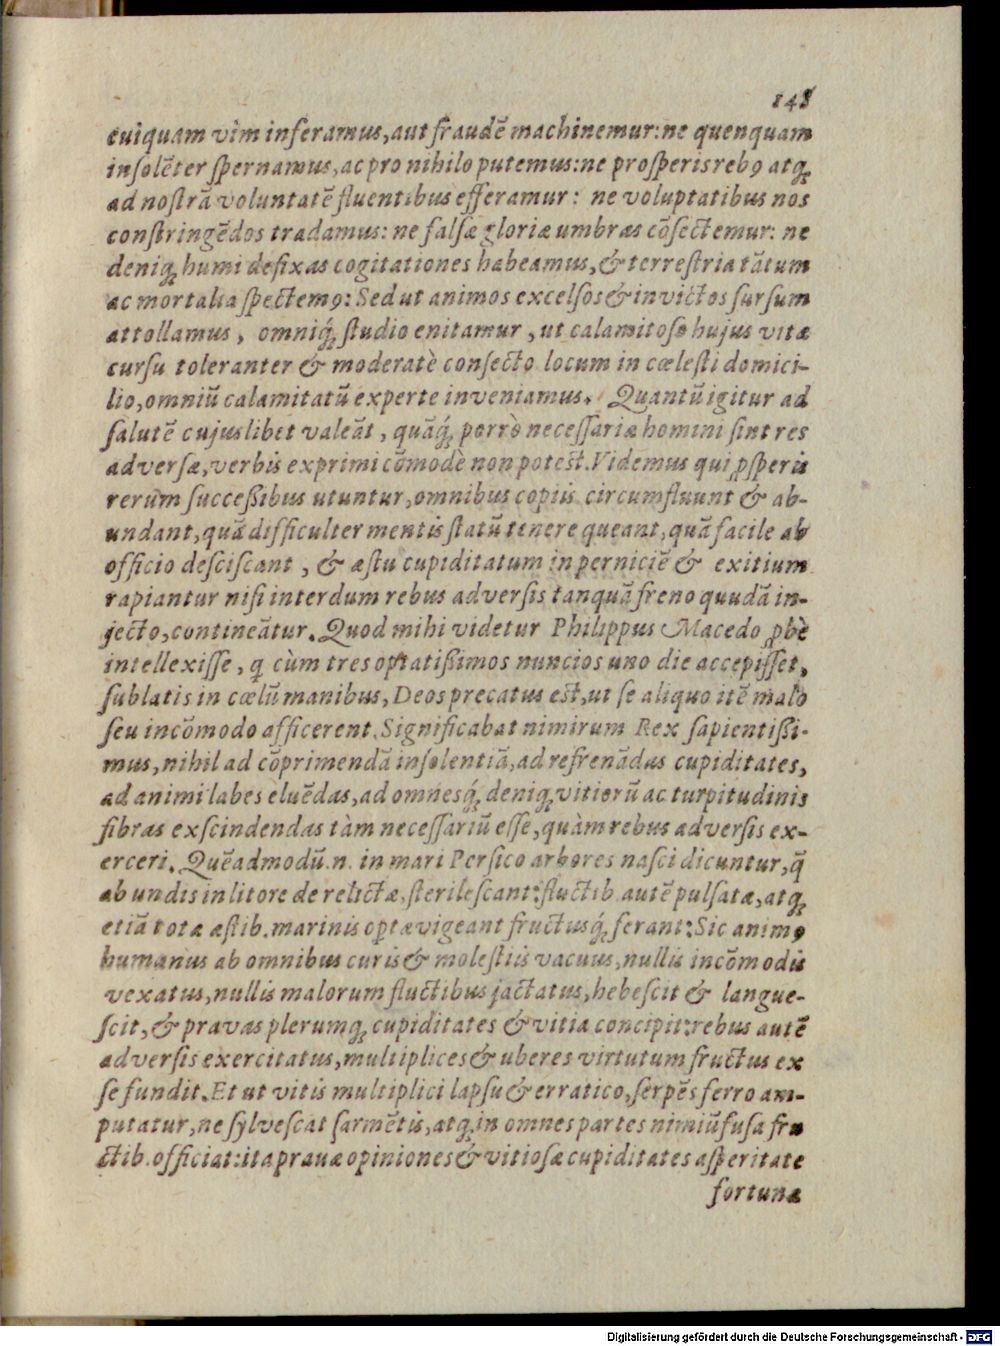 148
cuiquam vim inferamus, aut fraudē machinemur: ne quenquam
insolēter spernamus, ac pro nihilo putemus: ne prosperis rebꝰ atq́;
ad nostrā voluntatē fluentibus efferamur: ne voluptatibus nos
constringēdos tradamus: ne falsæ gloriæ umbras cōsectemur: ne
deniq; humi defixas cogitationes habeamus, & terrestria tātum
ac mortalia spectemꝰ: Sed ut animos excelsos & invictos sursum
attollamus, omniq́; studio enitamur, ut calamitoso hujus vitæ
cursu toleranter & moderatè confecto locum in cœlesti domici-
lio, omniū calamitatū experte inveniamus. Quantū igitur ad
salutē cujuslibet valeāt, quāq́; porrò necessariæ homini sint res
adversæ, verbis exprimi cōmodè non potest. Videmus qui ꝓsperis
rerum successibus utuntur, omnibus copiis circumfluunt & ab-
undant, quā difficulter mentis statū tenere queant, quā facile ab
officio desciscant, & æstu cupiditatum in perniciē & exitium
rapiantur nisi interdum rebus adversis tanquā freno quodā in-
jecto, contineātur. Quod mihi videtur Philippus Macedo ꝓbè
intellexisse, q cùm tres optatissimos nuncios uno die accepisset,
sublatis in cœlū manibus, Deos precatus est, ut se aliquo itē malo
seu incōmodo afficerent. Significabat nimirum Rex sapientissi-
mus, nihil ad cōprimendā insolentiā, ad refrenādas cupiditates,
ad animi labes eluēdas, ad omnesq́; deniq; vitiorū ac turpitudinis
fibras exscindendas tàm necessariū esse, quàm rebus adversis ex-
erceri. Quēadmodū .n. in mari Persico arbores nasci dicuntur, q̄
ab undis in litore derelictæ, sterilescant: fluctib. autē pulsatæ, atq;
etiā totæ æstib. marinis optæ vigeant fructusq́; ferant: Sic animꝰ
humanus ab omnibus curis & molestiis vacuus, nullis incōmodis
vexatus, nullis malorum fluctibus jactatus, hebescit & langue-
scit, & pravas plerumq; cupiditates & vitia concipit: rebus autē
adversis exercitatus, multiplices & uberes virtutum fructus ex
se fundit. Et ut vitis multiplici lapsu & erratico, serpēs ferro am-
putatur, ne sylvescat sarmētis, atq; in omnes partes nimiū fusa fru
ctib. officiat: ita pravæ opiniones & vitiosæ cupiditates asperitate
fortunæ
Digitalisierung gefördert durch die Deutsche Forschungsgemeinschaft - DFG